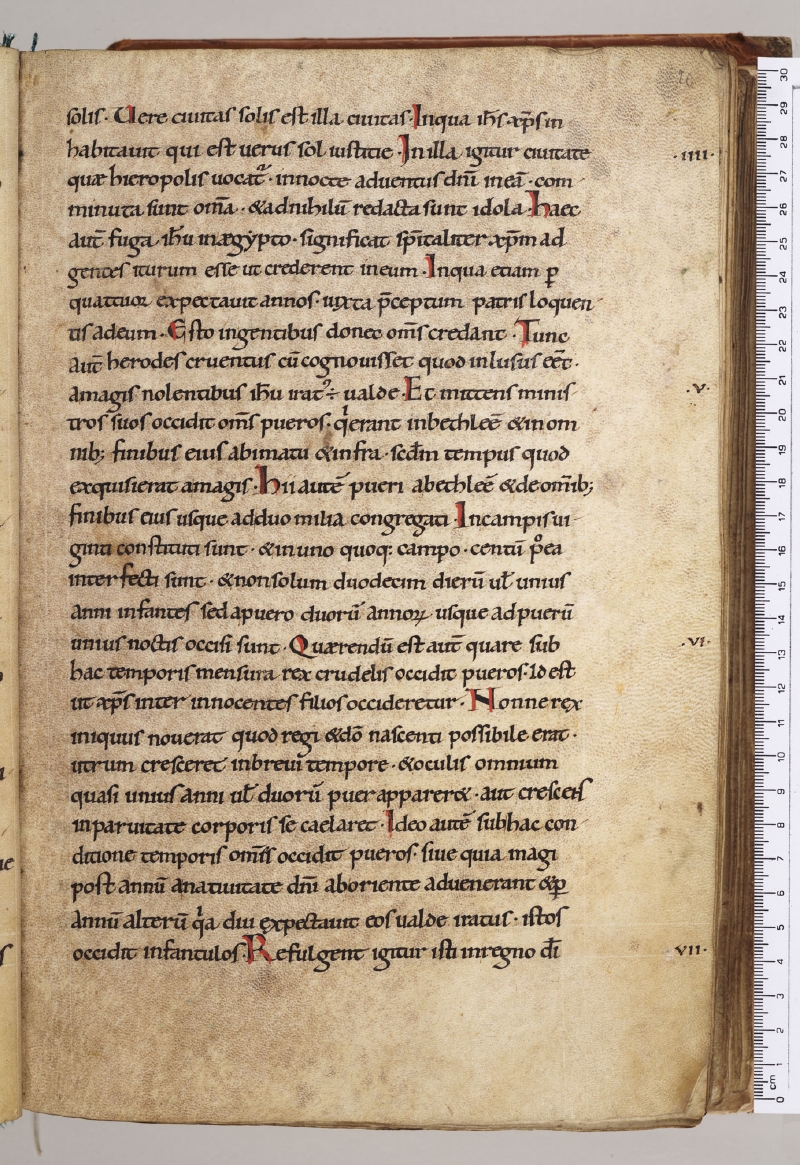 solis. Vere ciuitas solis est illa ciuitas. Inqua ih̅s xp̅s in
habitauit qui est uerus sol iustitie. In illa igitur ciuitate ·IIII·
quæ hieropolis uocat᷑ · innocte aduentus dn̅i in ea̅ · com
minuta sunt om̅a · & adnihilu̅ redacta sunt idola. Haec
aut̅ fuga ih̅u inægẏpto · significat sp̅italiter xp̅m ad
gentes iturum esse ut crederent ineum. Inqua etiam ꝑ
quattuor expectauit annos · iuxta p̅ceptum patris loquen
tis adeum. Esto ingentibus donec om̅s credant. Tunc
aut̅ herodes cruentus cu̅ cognouisset quod inlusus ee̅t ·
amagis nolentibus ih̅u irat᷒ ÷ ualde. Et mittens minis ·V·
tros suos occidit om̅s pueros · qͥ erant inbethlee̅ & in om
nib; finibus eius abimatu & infra · scd̅m tempus quod
exquisierat amagis. Hii aute̅ pueri abethlee̅ & de om̅ib;
finibus eius usque adduo milia congregati. Incampis ui
ginti constituti sunt · & inuno quoq: campo · centu̅ pͦea
interfecti sunt · & non solum duodecim dieru̅ ul̅ unius
anni infantes sed apuero duoru̅ annoꝝ · usque ad pueru̅
unius noctis occisi sunt · Quærendu̅ est aut̅ quare sub ·VI·
hac temporis mensura rex crudelis occidit pueros. Id est
ut xp̅s inter innocentes filios occideretur. Nonne rex
iniquus nouerat quod regi & do̅ nascenti possibile erat ·
utrum cresceret inbreui tempore · & oculis omnium
quasi unius anni ul̅ duoru̅ puer apparer& · aut crescens
inparuitate corporis se caelaret. Ideo aute̅ subhac con
ditione temporis om̅s occidit pueros · siue quia magi
post annu̅ anatiuitate dn̅i aboriente aduenerant & ꝑ
annu̅ alteru̅ qͥa diu expectauit eos ualde iratus · istos
occidit infantulos. Refulgent igitur isti inregno di̅ ·VII·